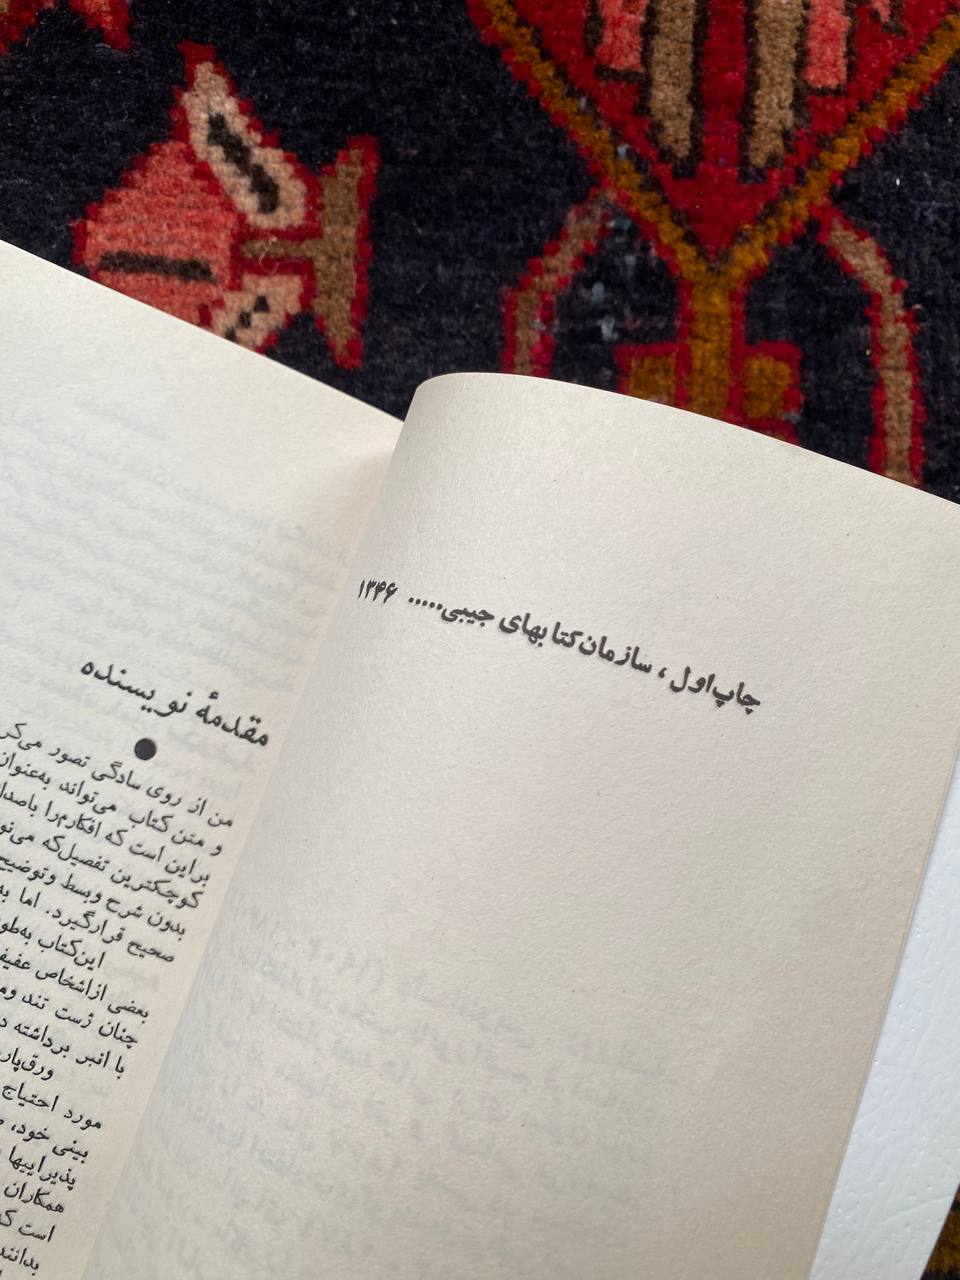 چاپ‌اول، سازمان‌کتابهای جیبی..... ۱۳۴۶
مقدمهٔ نویسنده
من از روی سادگی تصور می‌کر
و متن کتاب می‌تواند به‌عنوان
براین است که افکارم‌را باصدا
کوچکترین تفصیل‌که می‌نو
بدون شرح وبسط وتوضیح
صحیح قرارگیرد. اما به
این‌کتاب به‌طو
بعضی ازاشخاص عفیف
چنان ژست تند وم
با انبر برداشته د
ورق‌پار
مورد احتیاج
بینی خود،
پذیراییها
همکاران
است که
بدانند